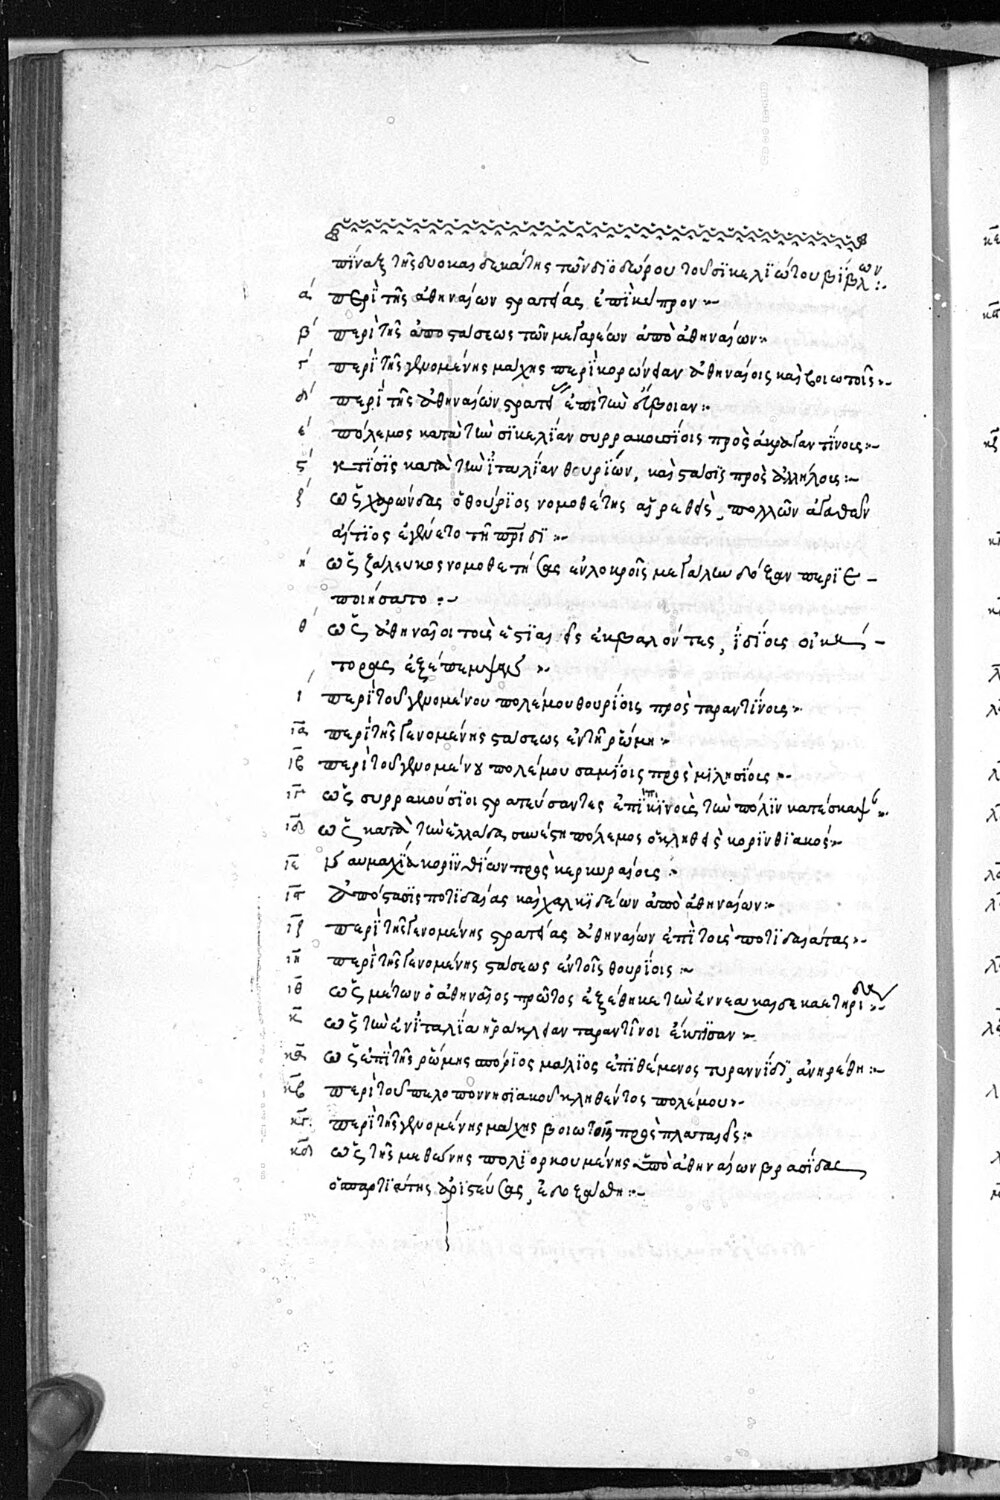 πΐναξ τῆς δυοκαιδεκάτης τῶν διοδώρου τοῦ σϊκελϊώτου βίβλων :·
α΄ περὶ τῆς ἀθηναίων στρατείας ἐπὶ κύπρον :~
β΄ περὶ τῆς ἀποστάσεως τῶν μεγαρέων ἀπὸ ἀθηναίων :~
γ΄ περὶ τῆς γενομένης μάχης περὶ κορώνειαν ἀθηναίοις καὶ βοιωτοῖς :~
δ΄ περὶ τῆς ἀθηναίων στρατείας ἐπὶ τὴν εὔβοιαν :~
ε΄ πόλεμος κατὰ τὴν σϊκελΐαν συρρακουσΐοις πρὸς ἀκραγαντΐνους :~
ς΄ κτίσϊς κατὰ τὴν ἰταλΐαν θουρΐων, καὶ στάσϊς πρὸς ἀλλήλους :~
ζ΄ ὡς χαρώνδας ὁ θούρϊος νομοθέτης αἱρεθεὶς, πολλῶν ἀγαθῶν
αἴτϊος ἐγένετο τῆ πρΐδϊ :~
η΄ ὡς ζάλευκος νομοθετήσας ἐν λοκροῖς μεγάλην δόξαν περϊε–
ποιήσατο :~
θ΄ ὡς ἀθηναῖοι τοὺς ἑστϊαιεῖς ἐκβαλόντες, ἰδΐους οἰκή–
τορας ἐξέπεμψαν :~
ι΄ περὶ τοῦ γενομένου πολέμου θουρΐοις πρὸς ταραντΐνους :~
ια περὶ τῆς γενομένης στάσεως ἐν τῆ ῥώμη :~
ιβ περὶ τοῦ γενομένου πολέμου σαμΐοις πρὸς μϊλησΐους :~
ιγ ὡς συρρακούσϊοι στρατεύσαντες ἐπὶ πϊκϊνοὺς τὴν πόλϊν κατέσκαψαν :~
ιδ ὡς κατὰ τὴν ἑλλάδα συνέστη πόλεμος ὁ κληθεὶς κορϊνθϊακός :~
ιε ναυμαχΐα κορϊνθΐων πρὸς κερκυραίους :~
ις ἀπόστασϊς ποτϊδαίας καὶ χαλκϊδέων ἀπὸ ἀθηναίων :~
ιζ περὶ τῆς γενομένης στρατείας ἀθηναίων ἐπὶ τοὺς ποτϊδαιάτας :~
ιη περὶ τῆς γενομένης στάσεως ἐν τοῖς θουρΐοις :~
ιθ ὡς μέτων ὁ ἀθηναῖος πρῶτος ἐξέθηκε τὴν ἐννεακαιδεκαετηρΐδα :~
κ ὡς τὴν ἐν ἰταλΐα ἡράκλειαν ταραντῖνοι ἔκτισαν :~
κα ὡς ἐπὶ τῆς ῥώμης σπόρϊος μάλϊος ἐπϊθέμενος τυραννΐδϊ, ἀνηρέθη :~
κβ περὶ τοῦ πελοποννησϊακοῦ κληθέντος πολέμου :~
κγ περὶ τῆς γενομένης μάχης βοιωτοῖς πρὸς πλαταιεῖς :~
κδ ὡς τῆς μεθώνης πολϊορκουμένης ὑπὸ ἀθηναίων βρασΐδας
ὁ σπαρτϊάτης ἀρϊστεύσας, ἐδοξάσθη :~